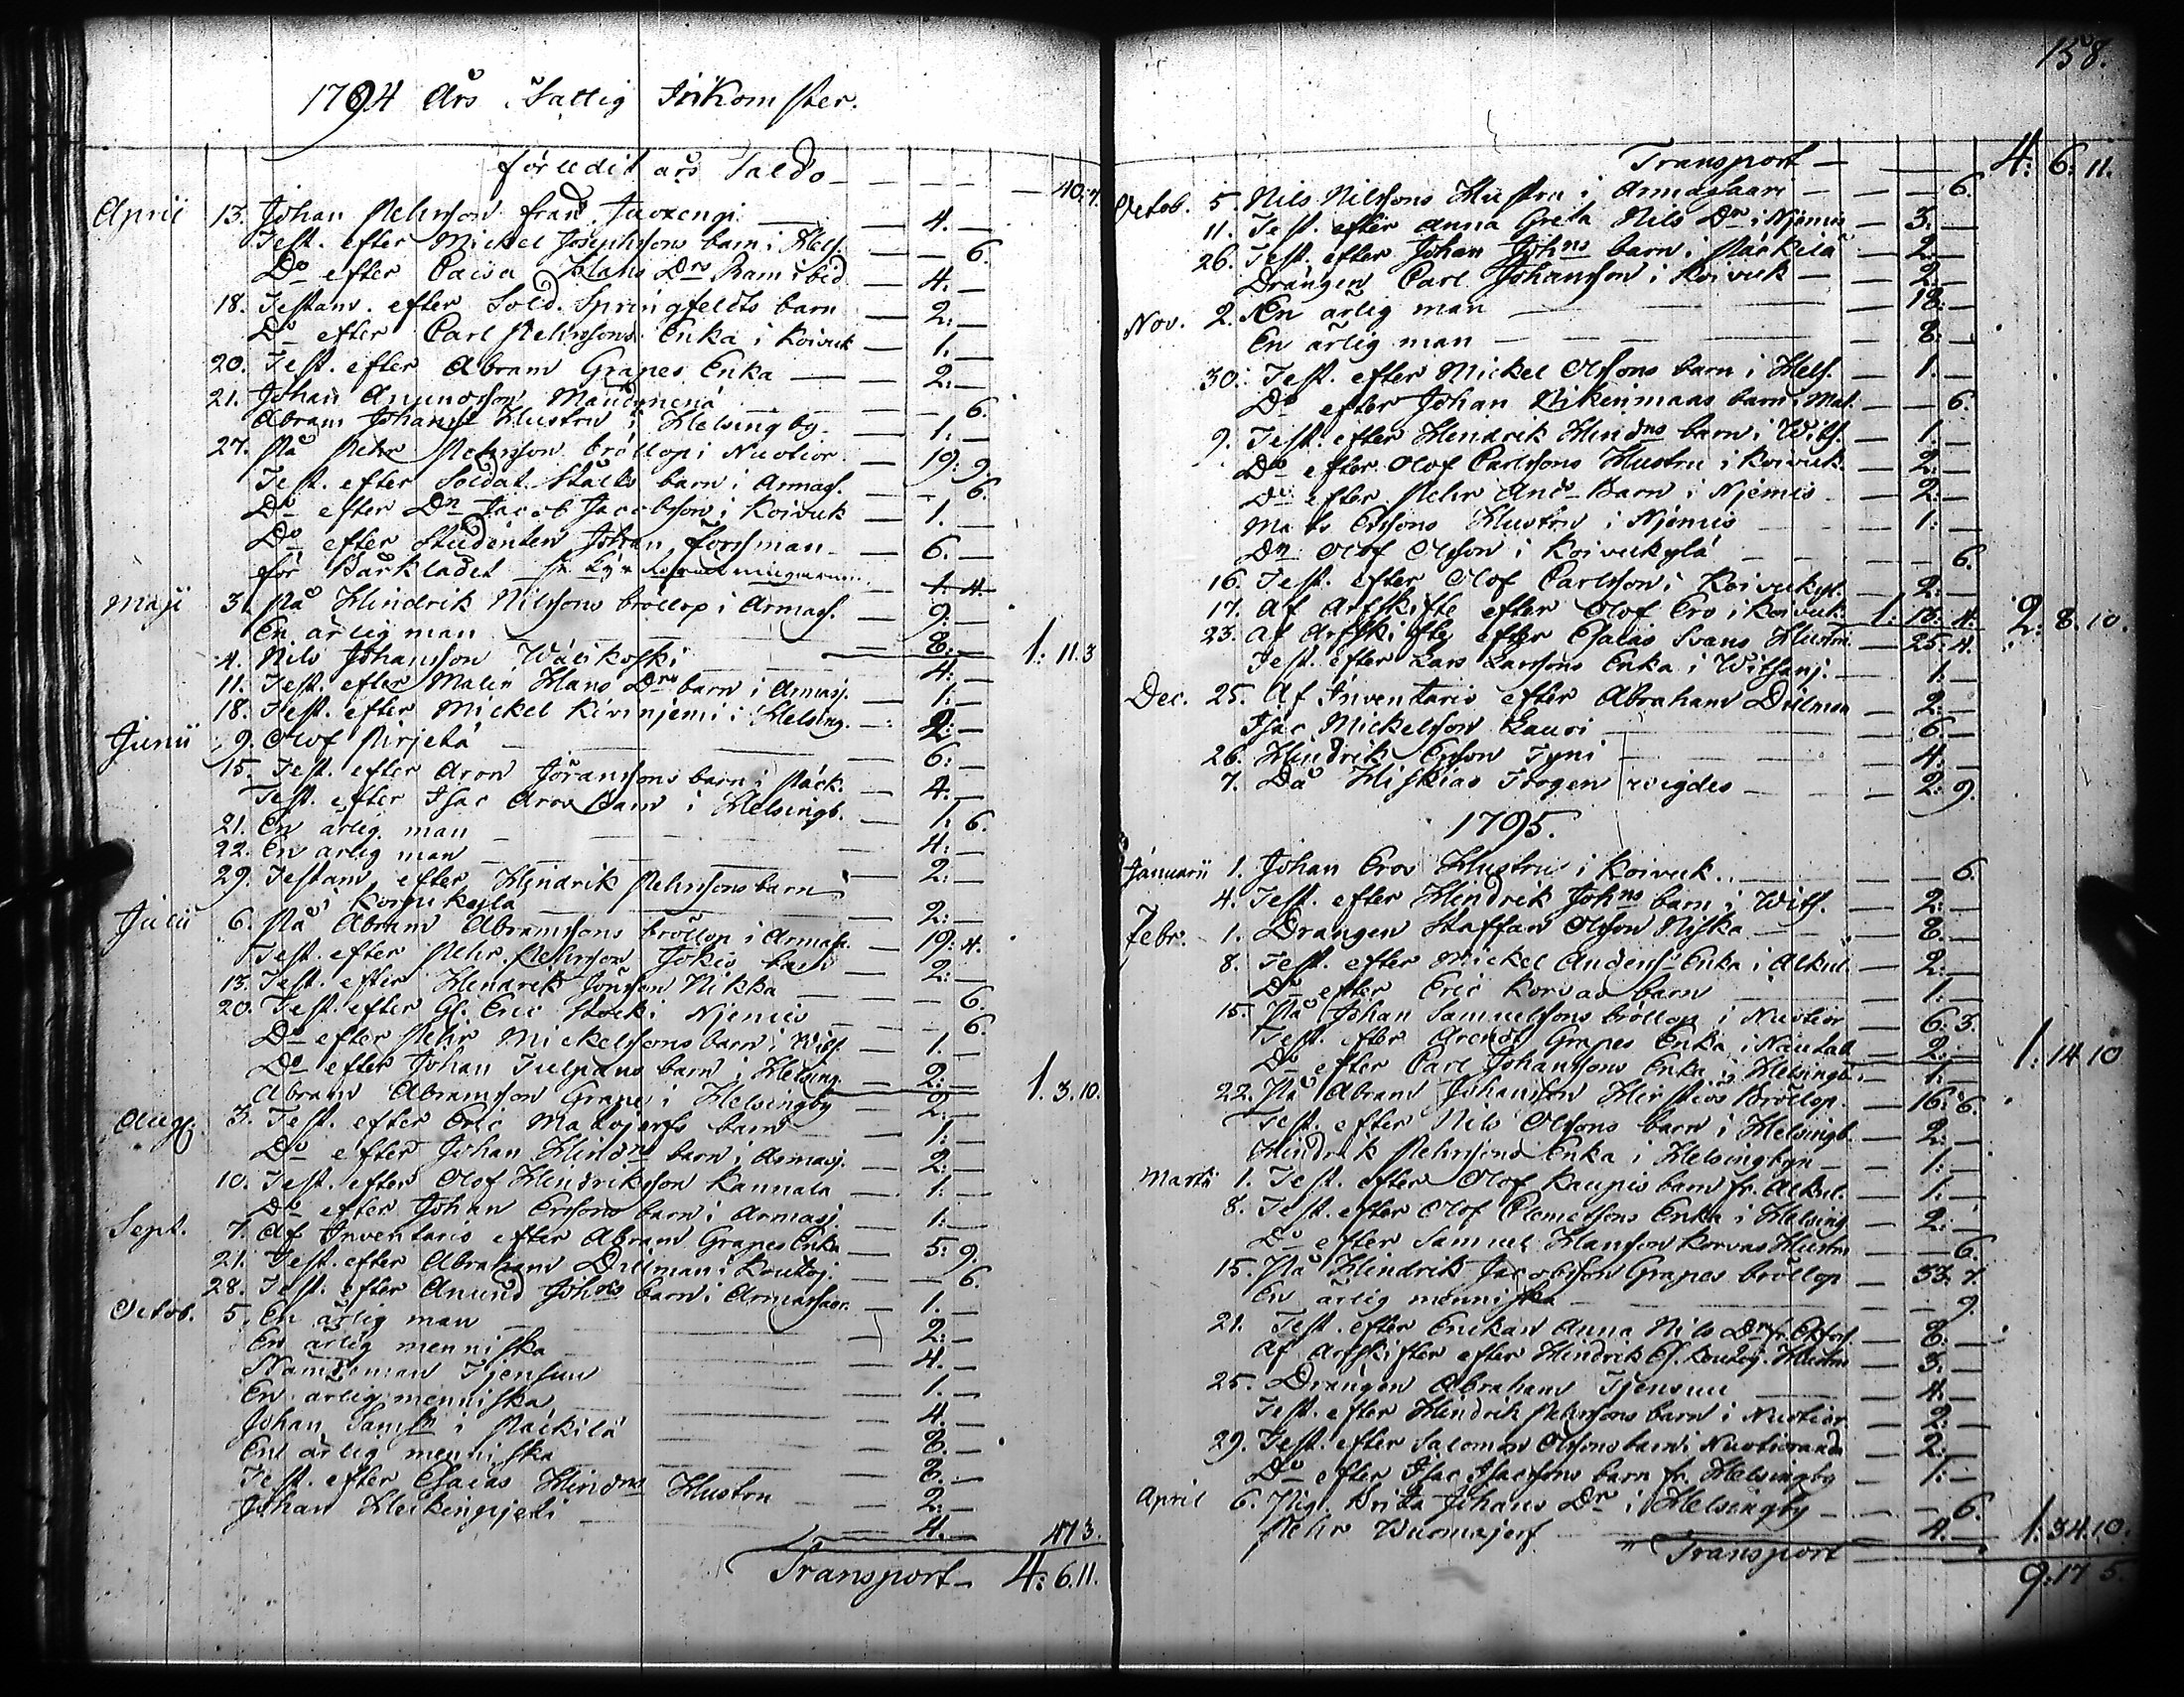 1794 Års Fattig Inkomster.
förledit års Saldo — 40: 7.
Aprii 13. Johan Pehrsson från Juoxengi — 4. —
Test. efter Mickel Josephsons barn i Hels. — — 6.
Do efter Caisa Hans Drs Barn ibid. — 4. —
18. Testam. efter Sold. Springfeldts barn — 2: —
Do efter Carl Pehrssons Enka i Koivuk — 1. —
20. Test. efter Abram Grapes Enka — 2: —
21. Johan Anundsson — — 6.
Abram Johans Hustru i Helsingby — 1: —
27. På Pehr Pehrsson bröllop i Nuotior. — 19: 9.
Test. efter Soldat Ståls barn i Armass. — — 6.
Do efter Dn Jacob Jacobsson i Koivuk — 1. —
Do efter Studenten Johan Forssman — 6. —
för Bårklädet — 1. 4
Maji 3. På Hindrik Nilssons bröllop i Armass. — 9: —
En ärlig man — 8: — 1: 11. 3
4. Nils Johansson Wälikoski — 4: —
11. Test. efter Malin Hans Drs barn i Armasj. — 1: —
18. Test. efter Mickel Kivinjemi i Helsing. — 2: —
Junii 9. Olof Pirjetä — 6: —
15. Test. efter Aron Jöranssons barn i Päck. — 4. —
Test. efter Isac Arons barn i Helsingb. — 1: 6.
21. En ärlig man — 4: —
22. En ärlig man — 2: —
29. Testam. efter Hindrik Pehrssons barn
i Koivukylä — 2: —
Julii 6. På Abram Abramssons bröllop i Armass. — 19: 4.
Test. efter Pehr Pehrsson Jokis barn — 2: —
13. Test. efter Hendrik Jönsson Nikka — — 6.
20. Test. efter Gl. Eric Stocki Njemis — — 6.
Do efter Pehr Mickelssons barn i Wits. — 1. —
Do efter Johan Tulpans barn i Helsing. — 2: — 1. 3. 10.
Abram Abramsson Grape i Helsingby — 2: —
Aug. 3. Test. efter Eric Matojerfs barn — 1: —
Do efter Johan Hindrs barn i Armasj. — 2: —
10. Test. efter Olof Hendriksson Kannala — 1: —
Do efter Johan Erssons barn i Armasj. — 1: —
Sept. 7. Af Inventario efter Abram Grapes Enka — 5: 9.
21. Test. efter Abraham Dillman i Koutoj. — — 6.
28. Test. efter Anund Johns barn i Armassaar. — 1. —
Octob. 5. En ärlig man — 2: —
En ärlig menniska — 4. —
Nämdeman Tjensuu — 1. —
En ärlig menniska — 4. —
Johan Samss i Päckilä — 8. —
En ärlig menniska — 8. —
Test. efter Esaias Hindrs Hustru — 2: —
Johan Heikinpjeti — 4. — 47 3.
Transport — 4: 6. 11.
158.
Transport — 4: 6: 11.
Octob. 5. Nils Nilssons Hustru i Armassaari — — 6.
11. Test. efter Anna Greta Nils Dr i Njemis — 3. —
26. Test. efter Johan Johns barn i Päckilä — 2. —
Drängen Carl Johansson i Koivuk — 2. —
Nov. 2. En ärlig man — 12: —
En ärlig man — 8: —
30. Test. efter Mickel Olssons barn i Hels. — 1. —
Do efter Johan barn i Mat. — — 6.
9. Test. efter Hendrik Hindrs barn i Wits. — 1. —
Do efter Olof Carlssons Hustru i Koivuk. — 2: —
Do efter Pehr Ands Barn i Njemis — 2: —
Mats Erssons Hustru i Njemis — 1: —
Dn Olof Olsson i Koivukylä — — 6.
16. Test. efter Olof Carlsson i Koivukyl. — 2: —
17. Af Arfskifte efter Olof Ers i Koivuk. 1: 18: 4. 2: 8. 10.
23. Af Arfskifte efter Esaias Svans Hustru — 25: 4.
Test. efter Lars Larssons Enka i Witsanj. — 1: —
Dec. 25. Af Inventario efter Abraham Dillman — 2: —
Isac Mickelsson Lauri — 6. —
26. Hindrik Ersson Tyni — 4. —
7. Då Hiskias Frogen vigdes — 2: 9.
1795.
Januarii 1. Johan Ers Hustru i Koivuk. — — 6.
4. Test. efter Hindrik Johns barn i Wits. — 2: —
Febr. 1. Drängen Staffan Olsson Niska — 8. —
8. Test. efter Mickel Anders Enka i Alkul. — 2: —
Do efter Eric Korvas barn — 1: —
15. På Johan Samuelssons bröllop i Nuotior — 6: 3.
Test. efter Arends Grapes Enka i — 2: — 1: 14 10
Do efter Carl Johanssons Enka i Helsingb. — 1: —
22. På Abram Johansson Hirstiös Bröllop — 16: 6.
Test. efter Nils Olssons barn i Helsingb. — 2: —
Hindrik Pehrssons Enka i Helsingbyn — 1: —
Martii 1. Test. efter Olof Kaupis barn fr. Alkul. — 1: —
8. Test. efter Olof Clemetssons Enka i Helsing. — 2: —
Do efter Samuel Hansson Korvas Hustru — — 6.
15. På Hindrik Jacobsson Grapes bröllop — 53. 7.
En ärlig menniska — — 9.
21. Test. efter Enkan Anna Nils Dr fr. — 8: —
Af Arfskiften efter Hindrik Es. Koutoj. Hustru — 3: —
25. Drängen Abraham Tjensuu — 4. —
Test. efter Hindrik Pehrssons barn i Nuotior. — 2: —
29. Test. efter Salomon Olssons barn i Nuotioranda — 2: —
Do efter Isac Isacssons barn fr. Helsingby — 1: —
April 6. Pig. Brita Johans Dr i Helsingby — — 6.
Pehr Wuomajerf — 4. — 1: 34. 10.
Transport — 9: 17 5.